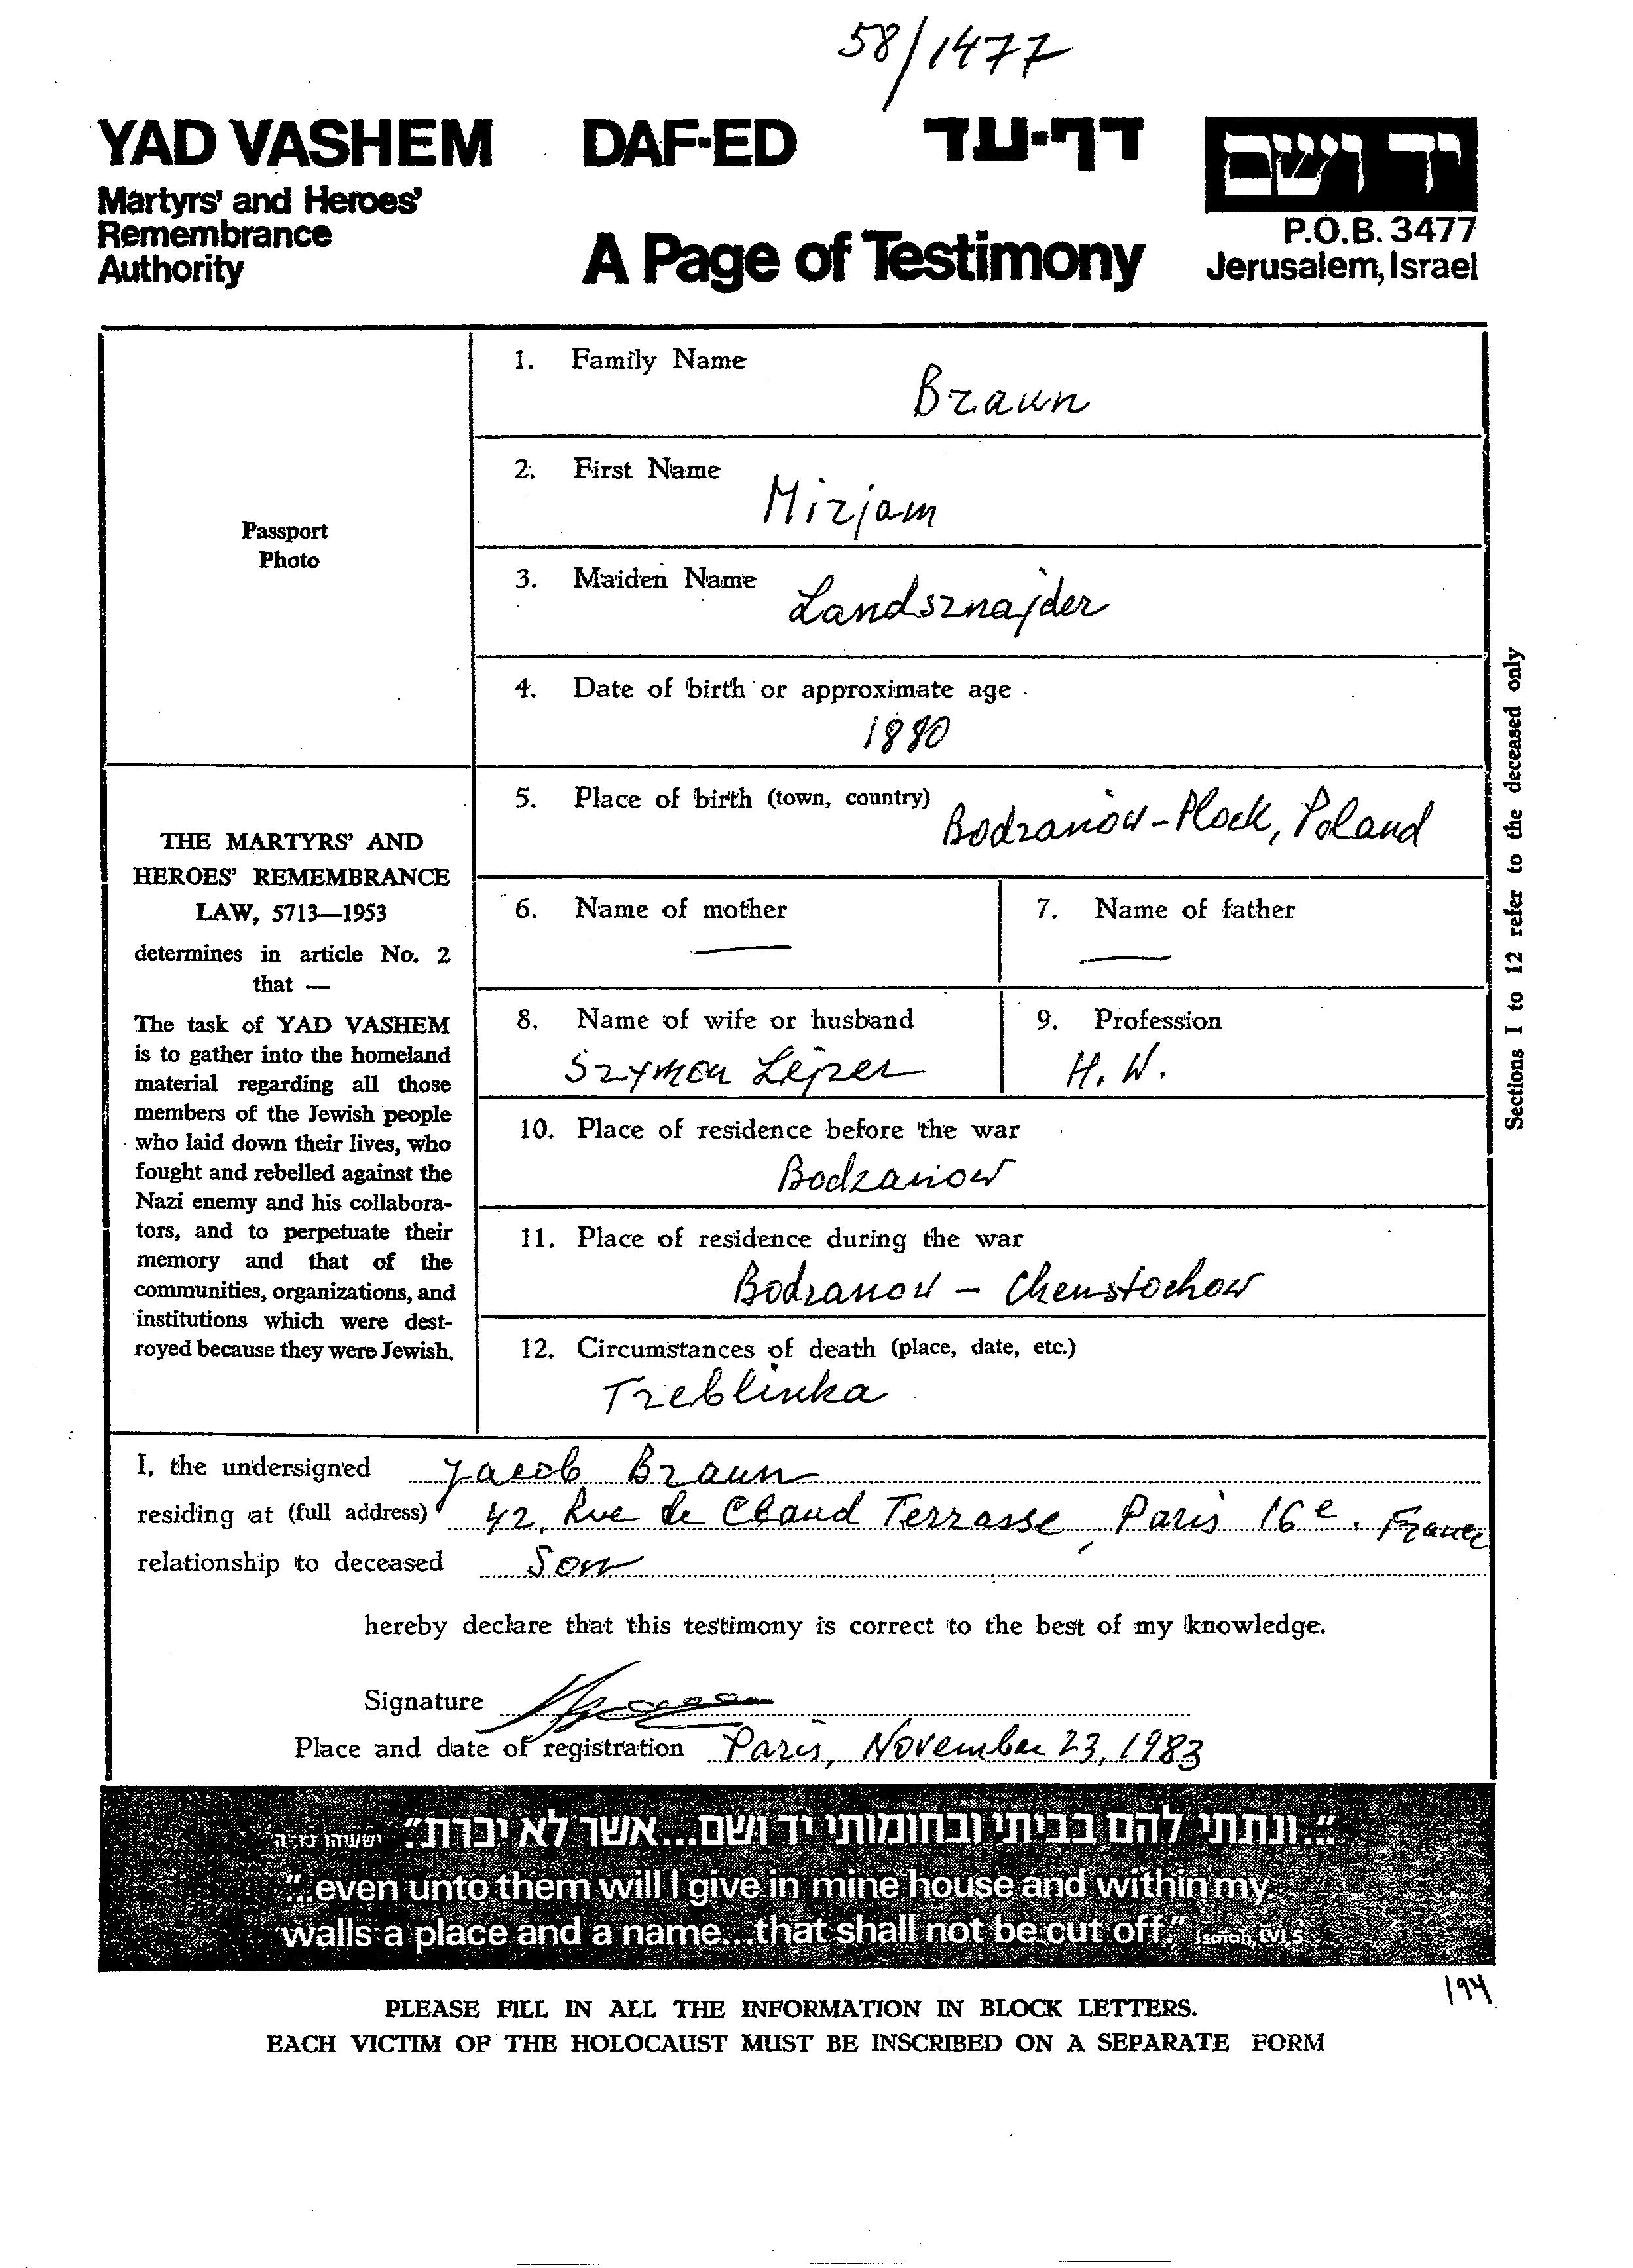 58/1477
YAD VASHEM DAF-ED דף-עד יד ושם
Martyrs' and Heroes'
Remembrance
Authority
A Page of Testimony
P.O.B. 3477
Jerusalem, Israel
Passport
Photo
1. Family Name
Braun
2. First Name
Mirjam
3. Maiden Name
Landsznajder
4. Date of birth or approximate age
1880
5. Place of birth (town, country)
Bodzanów-Plock, Poland
6. Name of mother
—
7. Name of father
—
8. Name of wife or husband
Szymon Lejzer
9. Profession
H. W.
10. Place of residence before the war
Bodzanow
11. Place of residence during the war
Bodzanow - Chenstochow
12. Circumstances of death (place, date, etc.)
Treblinka
Sections 1 to 12 refer to the deceased only
THE MARTYRS' AND
HEROES' REMEMBRANCE
LAW, 5713—1953
determines in article No. 2
that —
The task of YAD VASHEM
is to gather into the homeland
material regarding all those
members of the Jewish people
who laid down their lives, who
fought and rebelled against the
Nazi enemy and his collabora-
tors, and to perpetuate their
memory and that of the
communities, organizations, and
institutions which were dest-
royed because they were Jewish.
I, the undersigned Jacob Braun
residing at (full address) 42, Rue de Claud Terrasse, Paris 16e. France
relationship to deceased Son
hereby declare that this testimony is correct to the best of my knowledge.
Signature
Place and date of registration Paris, November 23, 1983
"...ונתתי להם בביתי ובחומותי יד ושם...אשר לא יכרת." ישעיהו נו,ה
"...even unto them will I give in mine house and within my
walls a place and a name...that shall not be cut off." Isaiah, LVI 5
194
PLEASE FILL IN ALL THE INFORMATION IN BLOCK LETTERS.
EACH VICTIM OF THE HOLOCAUST MUST BE INSCRIBED ON A SEPARATE FORM